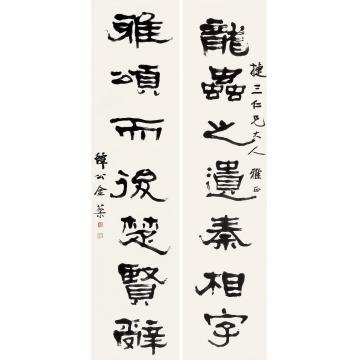 龍蟲之遺秦相字
捷三仁兄大人雅正
雅頌而後楚賢辭